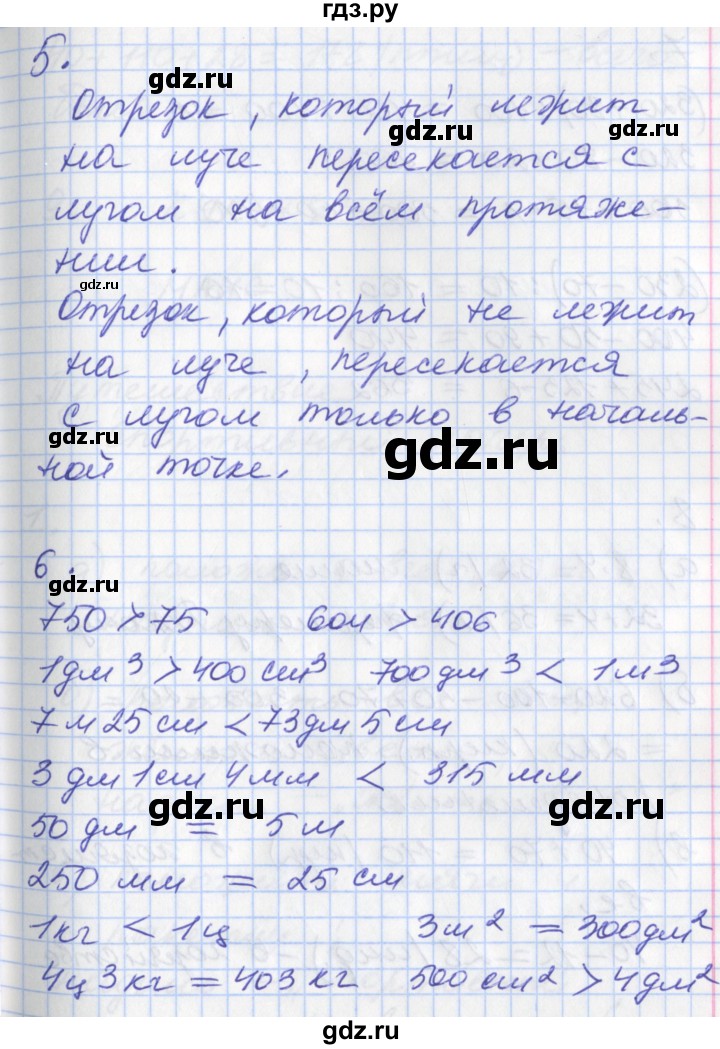 гдз.ру
5.
gdz.ru
Отрезок, который лежит
gdz.ru gdz.ru
на луче пересекается с
лучом на всём протяже-
нии.
gdz.ru
Отрезок, который не лежит
на луче, пересекается
с лучом только в началь-
gdz.ru
ной точке.
gdz.ru
6.
gdz.ru
750 > 75 604 > 406
1 дм³ > 400 см³ 700 дм³ < 1 м³
7 м 25 см < 73 дм 5 см
3 дм 1 см 4 мм < 315 мм
gdz.ru
gdz.ru
50 дм = 5 м
250 мм = 25 см
1 кг < 1 ц 3 м² = 300 дм²
gdz.ru
4 ц 3 кг = 403 кг 500 см² > 4 дм²
gdz.ru
гдз.ру